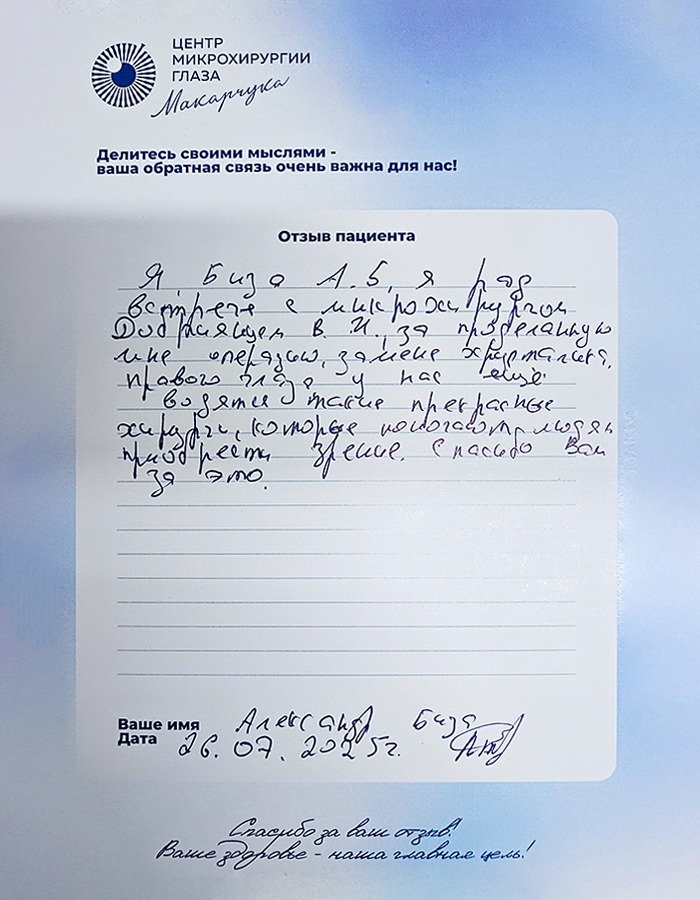 ЦЕНТР
МИКРОХИРУРГИИ
ГЛАЗА
Макарчука
Делитесь своими мыслями -
ваша обратная связь очень важна для нас!
Отзыв пациента
Я, Биза А.Б, я рад
встрече с микрохирургом
В. И., за проделанную
мне операзыю, замене хрусталика,
правого глаза у нас еще
водятся такие прекрасные
хирурги, которые помогают людям
приобрести зрение. Спасибо Вам
за это.
Ваше имя Александр Биза
Дата 26.07.2025г.
Спасибо за ваш отзыв!
Ваше здоровье - наша главная цель!